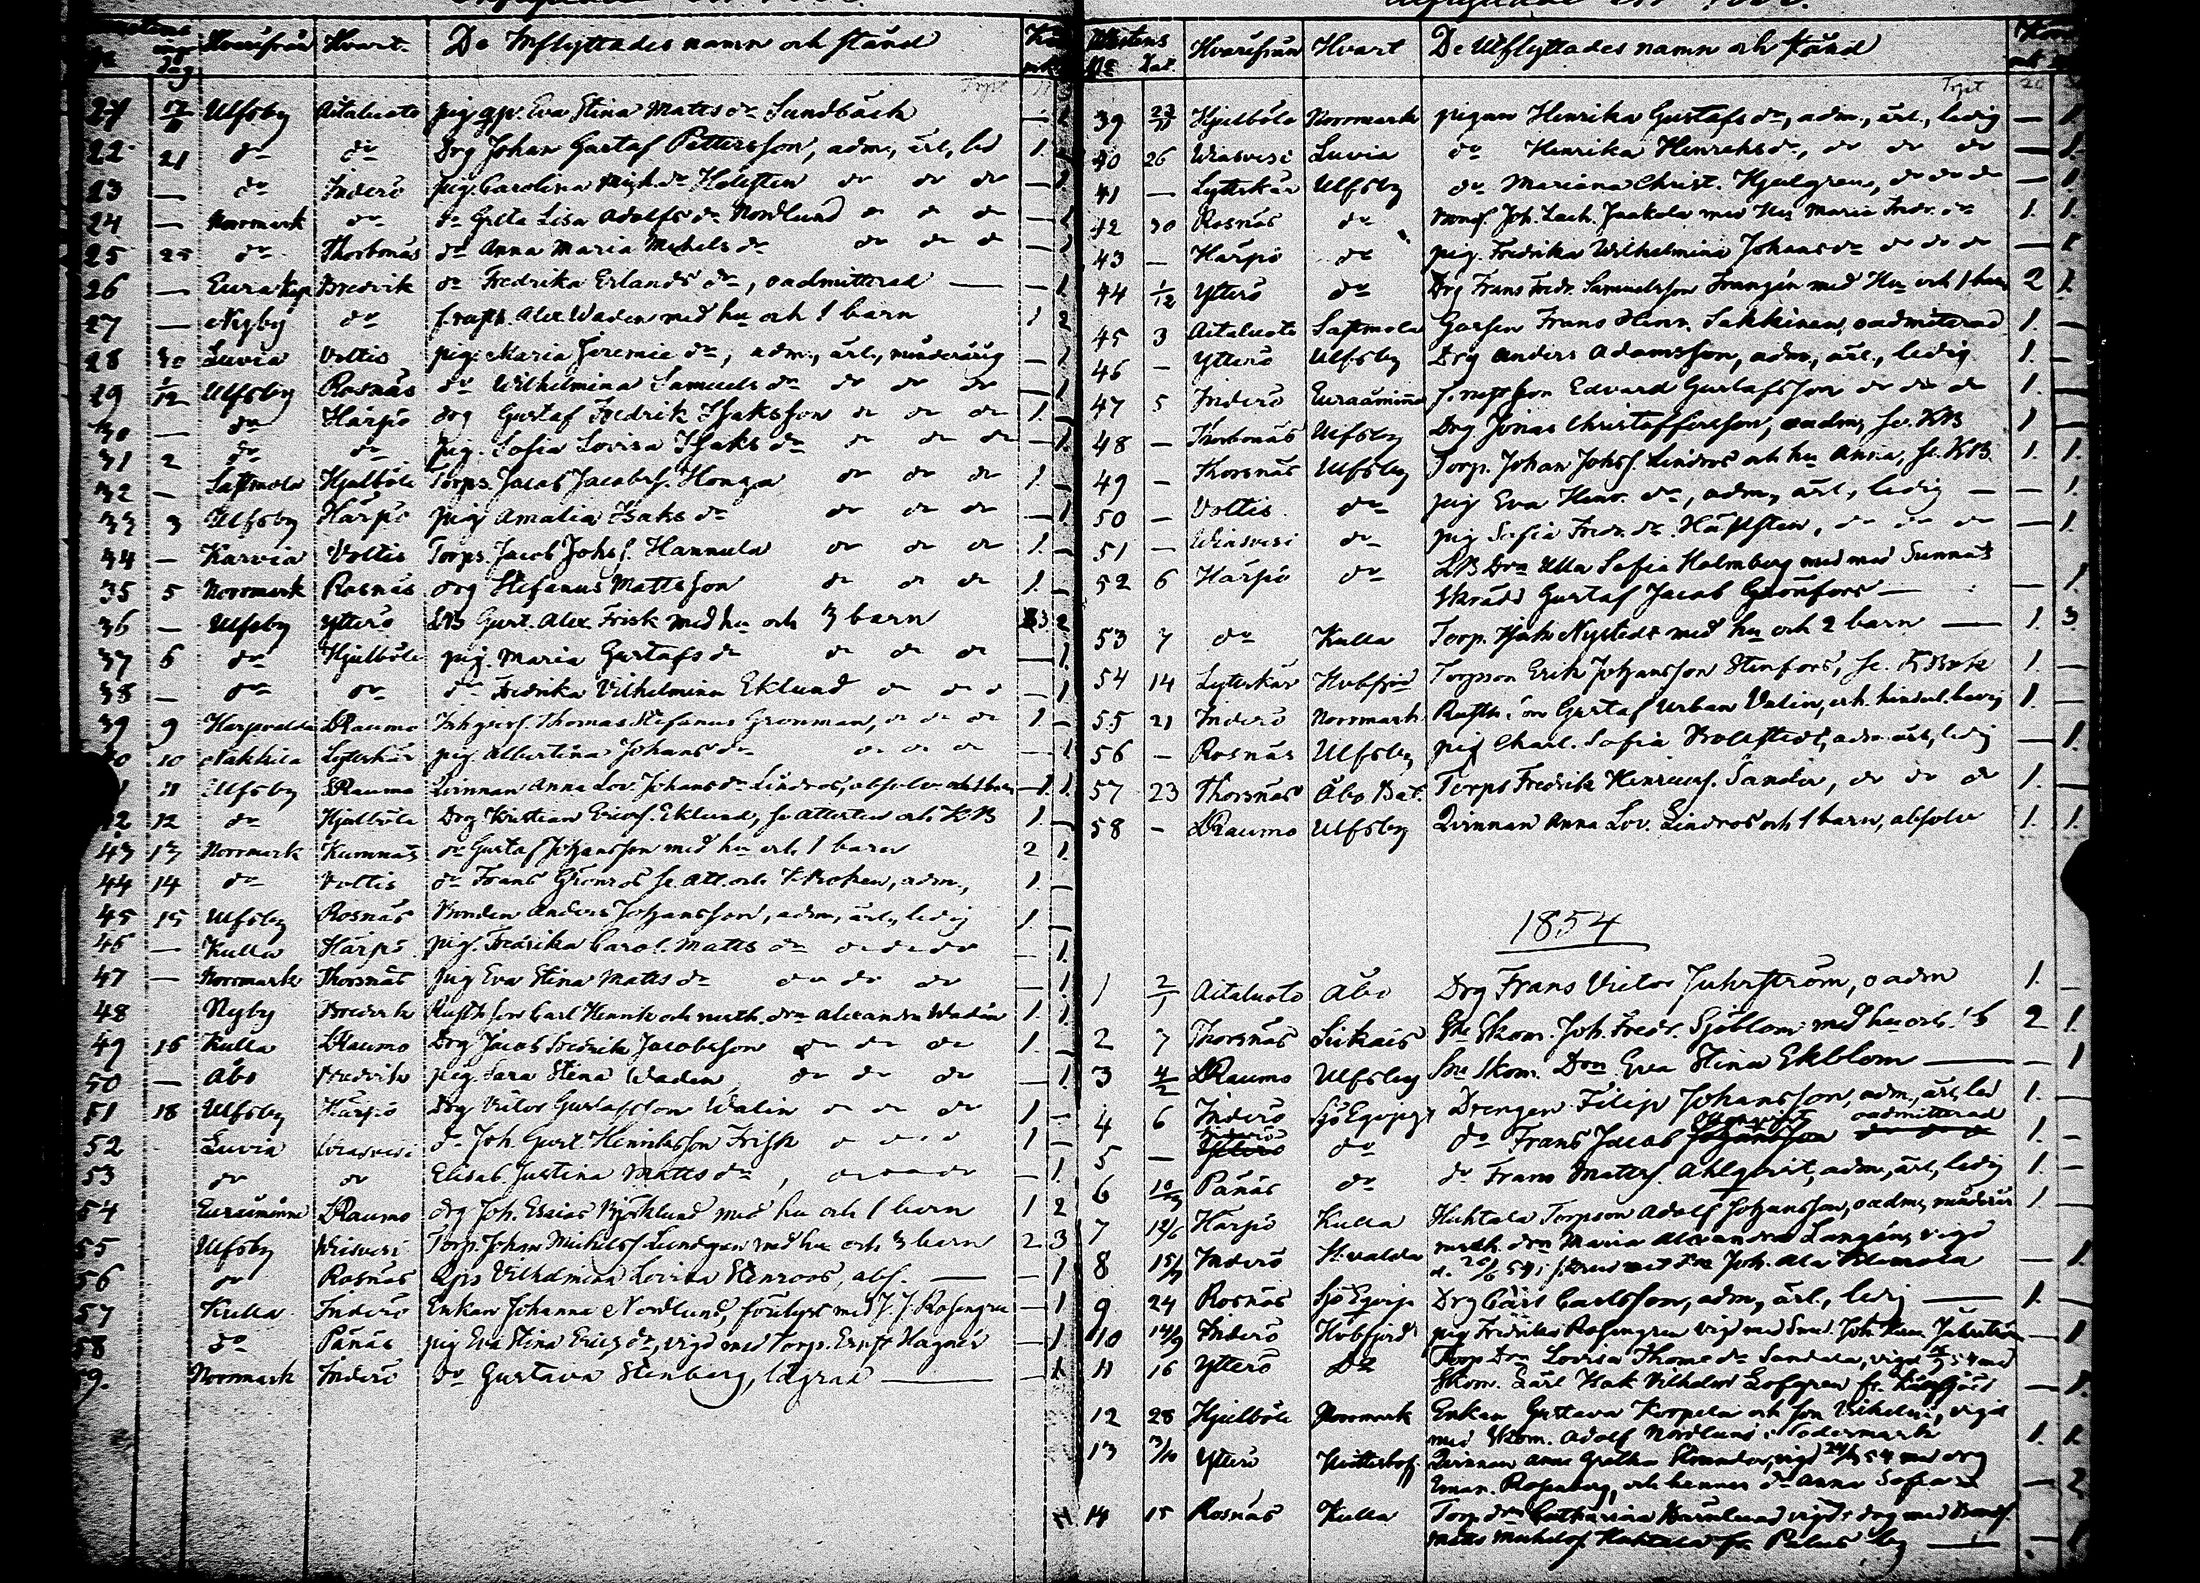 Hvarifrån Hvart De Inflyttades namn och stånd
21 17/11 Ulfsby Aitaluoto pig Eva Stina Matts dr Sundbäck — 1
22 21 do do Drg Johan Gustaf Pettersson, adm, ärl, led 1. —
23 — do Inderö pig. Carolina Mich. dr Hölsten do do do — 1
24 — Norrmark do do Greta Lisa Adolfs dr Nordlund do do do — 1
25 25 do Thorsnäs do Anna Maria Michels dr do do do — 1
26 — Eura Kap Bredvik do Fredrika Erlands dr, oadmitterad — — 1
27 — Nyby do Alex. Waden med hu och 1 barn 1 2
28 30 Luvia Voltis pig. Maria Jeremie dr, adm, ärl, minderårig — 1
29 1/12 Ulfsby Rosnäs do Wilhelmina Samuels dr do do do — 1
30 — do Härpö drg Gustaf Fredrik Isaksson do do do 1. —
31 2 do do pig. Sofia Lovisa Isaks dr do do do — 1.
32 — Sastmola Hjulböle Torps. Jacob Jacobss. Honga do do do 1. —
33 3 Ulfsby Härpö pig Amalia Isaks dr do do do — 1
34 — Karvia Voltis Torps. Jacob Johss. Hannula do do do 1. —
35 5 Norrmark Rosnäs drg Stefanus Mattsson do do do 1. —
36 — Ulfsby Ytterö Gust. Alex Frisk med hu och 3 barn 3 2
37 6 do Hjulböle pig. Maria Gustafs dr do do do — 1
38 — do do do Fredrika Vilhelmina Eklund do do do — 1
39 9 LRaumo Thomas Stefanus Grönman, do do do 1. —
40 10 Nakkila Lyttskär pig. Albertina Johans dr do do do — 1
41 11 Ulfsby LRaumo Qvinnan Anna Lov. Johans dr Lindros, absolv. — 1 1.
42 12 do Hjulböle Drg Kristian Ericss. Eklund, se attesten och KB 1. —
43 13 Norrmark Kumnäs do Gustaf Johansson med hu och 1 barn 2 1.
44 14 do Voltis do Frans Grönros se att. och Kboken, adm, 1. —
45 15 Ulfsby Rosnäs Bonden Anders Johansson, adm, ärl, ledig 1. —
46 — Kulla Härpö pig. Fredrika Carol. Matts dr do do do — 1.
47 — Norrmark Thorsnäs pig Eva Stina Matts dr do do do — 1
48 Nyby Bredvik Rusth. son Carl Henrik och rusth. drn Alexandra Wadén 1. 1.
49 16 Kulla LRaumo Drg Jacob Fredrik Jacobsson do do do 1. —
50 — Åbo Bredvik pig. Sara Stina Waden do do do — 1.
51 18 Ulfsby Härpö Drg Victor Gustafsson Walin do do do 1 —
52 Luvia Wiasvesi do Joh. Gust. Henriksson Frisk do do do 1 —
53 do do Elisab. Justina Matts dr, do do do — 1.
54 Euraåminne LRaumo drg Joh. Esaias Björklund med hu och 1 barn 1 2
55 Ulfsby Wiasvesi Torp. Johan Michelss. Lundgren med hu och 3 barn 2 3
56 do Rosnäs Vilhelmina Lovisa Stenroos, abs. — — 1
57 Kulla Inderö Enkan Johanna Nordlund, med J. J. Rosengren — 1
58 do Pånäs pig Eva Stina Erics dr, vigd med torp. Ernst Hagner — 1.
59. Norrmark Inderö do Gustava Stenberg, lägrad — — 1
No Dat. Hvarifrån Hvart De Utflyttades namn och stånd
39 23/11 Hjulböle Norrmark pigan Henrika Gustafs dr, adm., ärl., ledig — 1.
40 26 Wiasvesi Luvia do Henrika Henriks dr, do do do — 1.
41 — Lyttskär Ulfsby do Mariana Christ. Hjulgren, do do do — 1
42 30 Rosnäs do Joh. Zach. Jaakola med Hu Maria Indr. dr 1. 1.
43 — Härpö do pig. Fredrika Wilhelmina Johans dr do do do — 1
44 1/12 Ytterö do Drg Frans Fredr. Samuelsson Frangén med Hu och 1 barn 2 1.
45 3 Aitaluoto Sastmola Gossen Frans Henr. Sakkinen, oadmitterad 1. —
46 — Ytterö Ulfsby Drg Anders Adamsson, adm, ärl, ledig 1. —
47 5 Inderö Euraåminne Edvard Gustafsson do do do 1. —
48 — Thorsnäs Ulfsby Drg Jonas Christoffersson, oadm, se KB 1 —
49 — Thorsnäs Ulfsby Torp. Johan Johss. Lindros och hu Anna, se KB. 1. 1.
50 — Voltis do pig Eva Henr. dr, adm, ärl, ledig — — 1.
51 — Wiasvesi do pig Sofia Fredr. dr. Häststen, do do do — 1
52 6 Härpö do LB Drn Ulla Sofia Holmberg med
Skrädd Gustaf Jacob Grönfors — — 1.
53 7 do Kulla Torp. Isak Nystedt med hu och 2 barn — 1. 3.
54 14 Lyttskär Hvbfjärd Torpson Erik Johansson Stenfors, se Kbok 1 —
55 21 Inderö Norrmark Rusth. son Gustaf Urban Valin, 1. —
56 — Rosnäs Ulfsby pig Charl. Sofia adm. ärl, ledig — 1.
57 23 Thorsnäs Åbo Bat. Torps Fredrik Henricss. Sandér, do do do 1. —
58 — LRaumo Ulfsby Qvinnan Anna Lov. Lindros och 1 barn, absolv 1. 1.
1854
1 2/1 Aitaluoto Åbo Drg Frans Victor Fuhrström, oadm 1. —
2 7 Thorsnäs Siikais Skom. Joh. Fredr. Sjöblom med hu och 1 b 2 1.
3 4/2 LRaumo Ulfsby Skom. Drn Eva Stina Ekblom — — 1
4 6 Inderö Sjö Eqvipge Drengen Filip Johansson, adm, ärl, led 1. —
5 — Inderö do do Frans Jacob oadmitterad 1. —
6 10/3 Pånäs do do Frans Mattss. Ahlqvist, adm, ärl, ledig 1. —
7 12/6 Härpö Kulla Huhtala Torpson Adolf Johansson, oadm, minderår 1. —
8 15/7 Inderö rusth. drn Maria Alexandra Langén, vigd
Joh. Ala Klemola — 1.
9 24 Rosnäs Sjö Eqvip Drg Carl Carlsson, adm, ärl, ledig — 1. —
10 14/9 Inderö Hvbfjerd pig Fredrika Rosengren vigd med Smed. Joh. — 1
11 16 Ytterö Do Torp Drn Lovisa Thome dr Sandala, vigd med
Skom. Carl Isak Vilhelm Löfgren fr. — 1.
12 28 Hjulböle Norrmark Enkan Gustava Korpela och son Vilhelm, vigd
med Skom. Adolf Nordlund i Södermark 1. 1.
13 3/10 Ytterö Qvinnan Anna Gretha vigd 54 med drg
Eman. Rosenberg, och hennes dr Anna Sofia — 2
14 15 Rosnäs Kulla Torp drn Catharina vigd med
Matts Michelss. Huhtala fr. Palus by — — 1